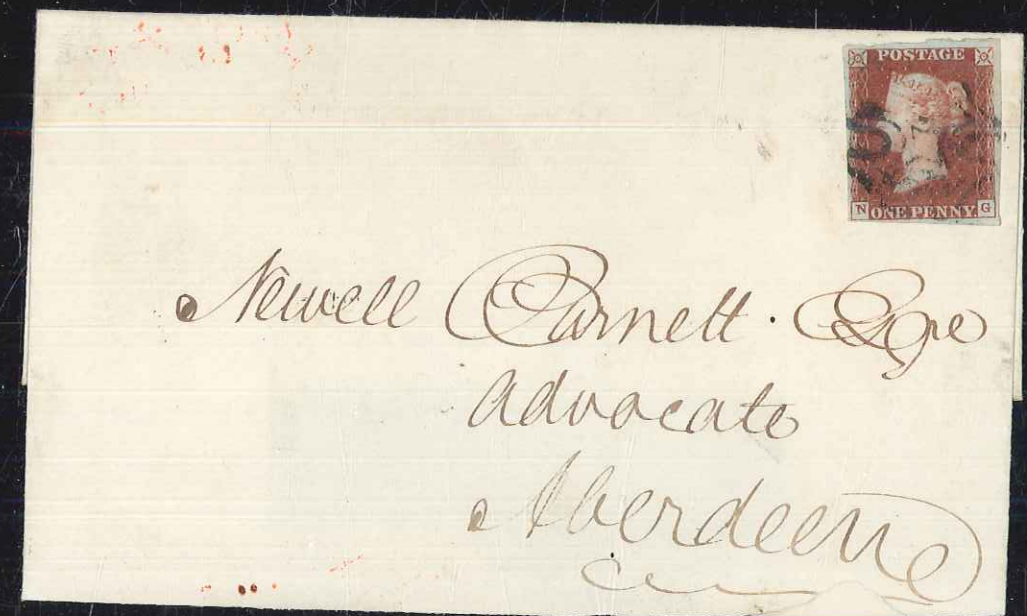 POSTAGE
N ONE PENNY G
Newell Burnett. Esqre
Advocate
Aberdeen